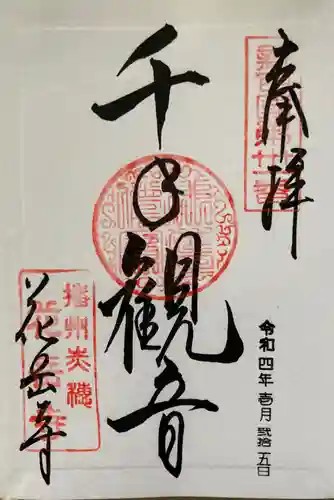 奉拝
千手観音
令和四年壱月弐拾五日
播州赤穂
花岳寺
花岳寺